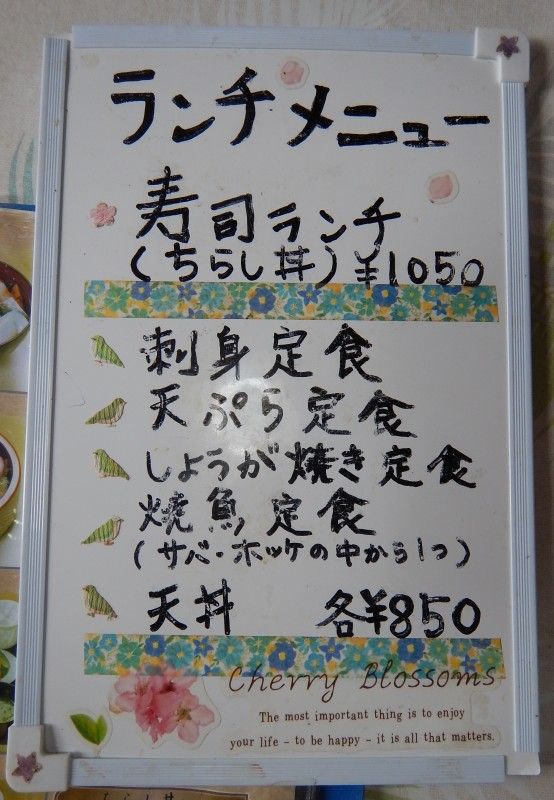 ランチメニュー
寿司ランチ
(ちらし丼)¥1050
刺身定食
天ぷら定食
しょうが焼き定食
焼魚定食
(サバ・ホッケの中から1つ)
天丼 各¥850
Cherry Blossoms
The most important thing is to enjoy
your life - to be happy - it is all that matters.
ちらし丼